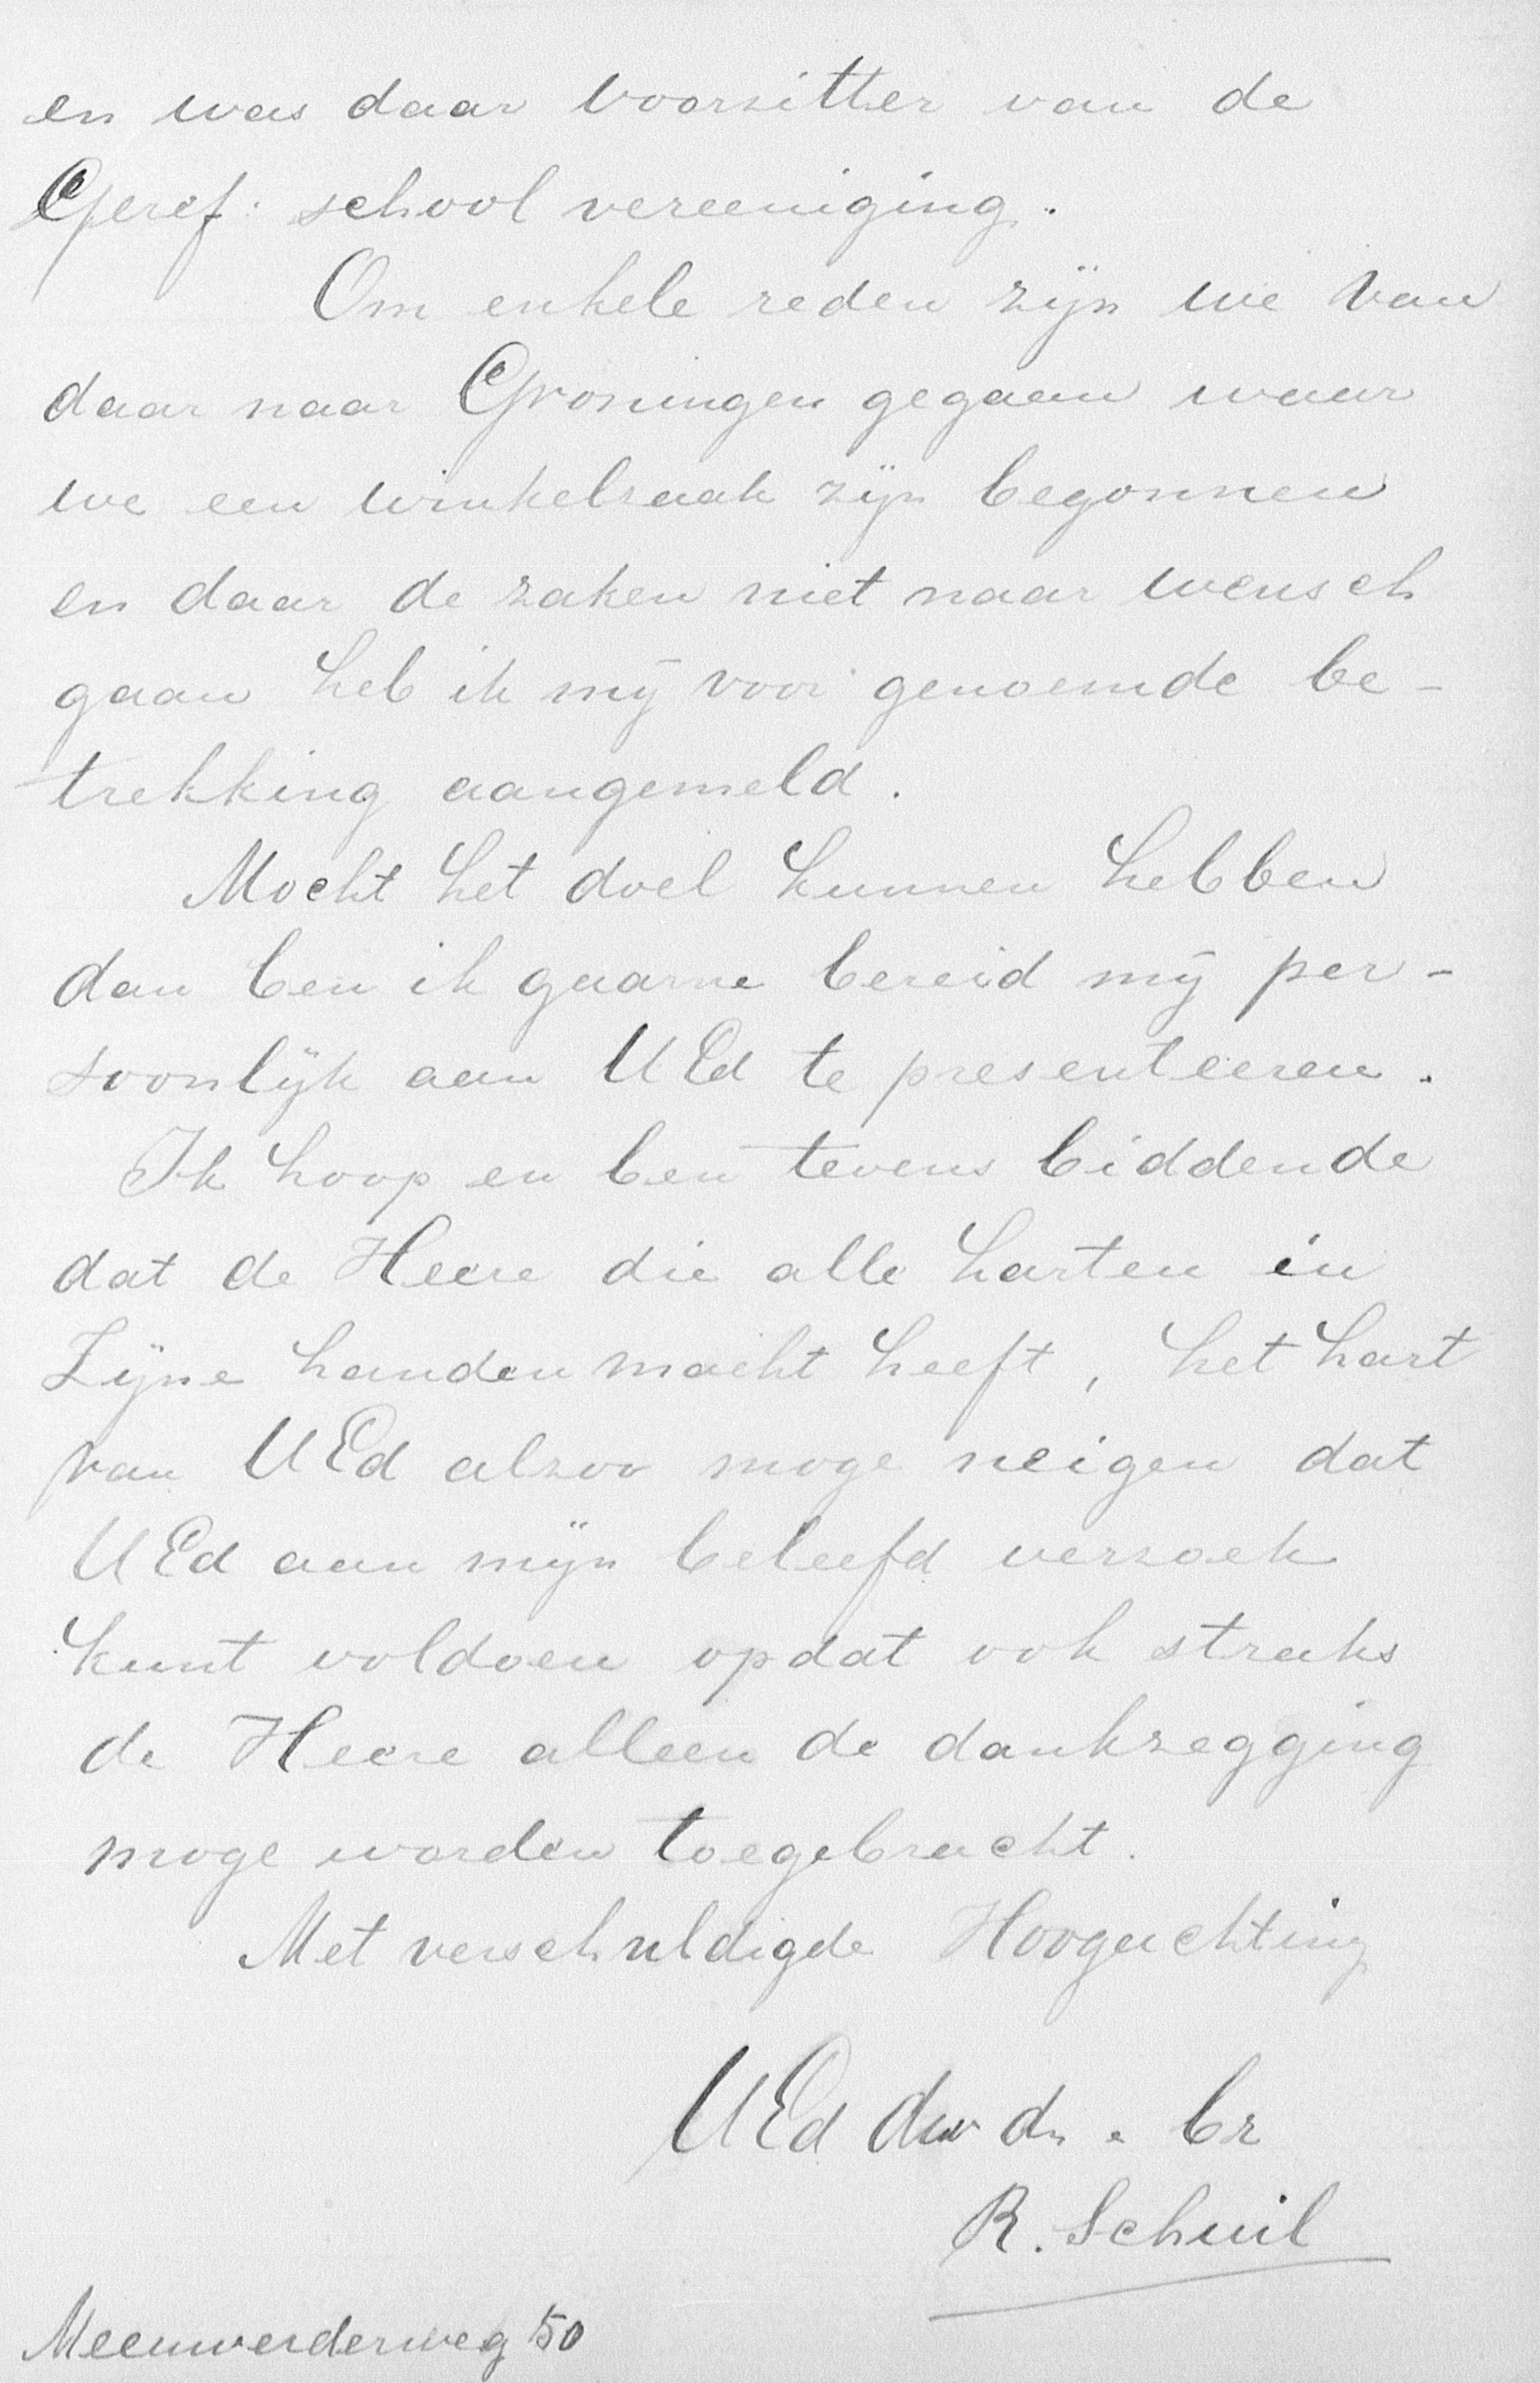 en was daar voorzitter van de
Geref: school vereeniging.
Om enkele reden zijn we van
daar naar Groningen gegaan waar
we een winkelzaak zijn begonnen
en daar de zaken niet naar wensch
gaan heb ik mij voor genoemde be-
trekking aangemeld.
Mocht het doel kunnen hebben
dan ben ik gaarne bereid mij per-
soonlijk aan UEd te presenteeren.
Ik hoop en ben tevens biddende
dat de Heere die alle harten in
Zijne handen macht heeft, het hart
van UEd alzoo moge neigen dat
UEd aan mijn beleefd verzoek
kunt voldoen opdat ook straks
de Heere alleen de dankzegging
moge worden toegebracht.
Met verschuldigde Hoogachting
UEd dw dn. br
R. Schuil
Meeuwerderweg 50